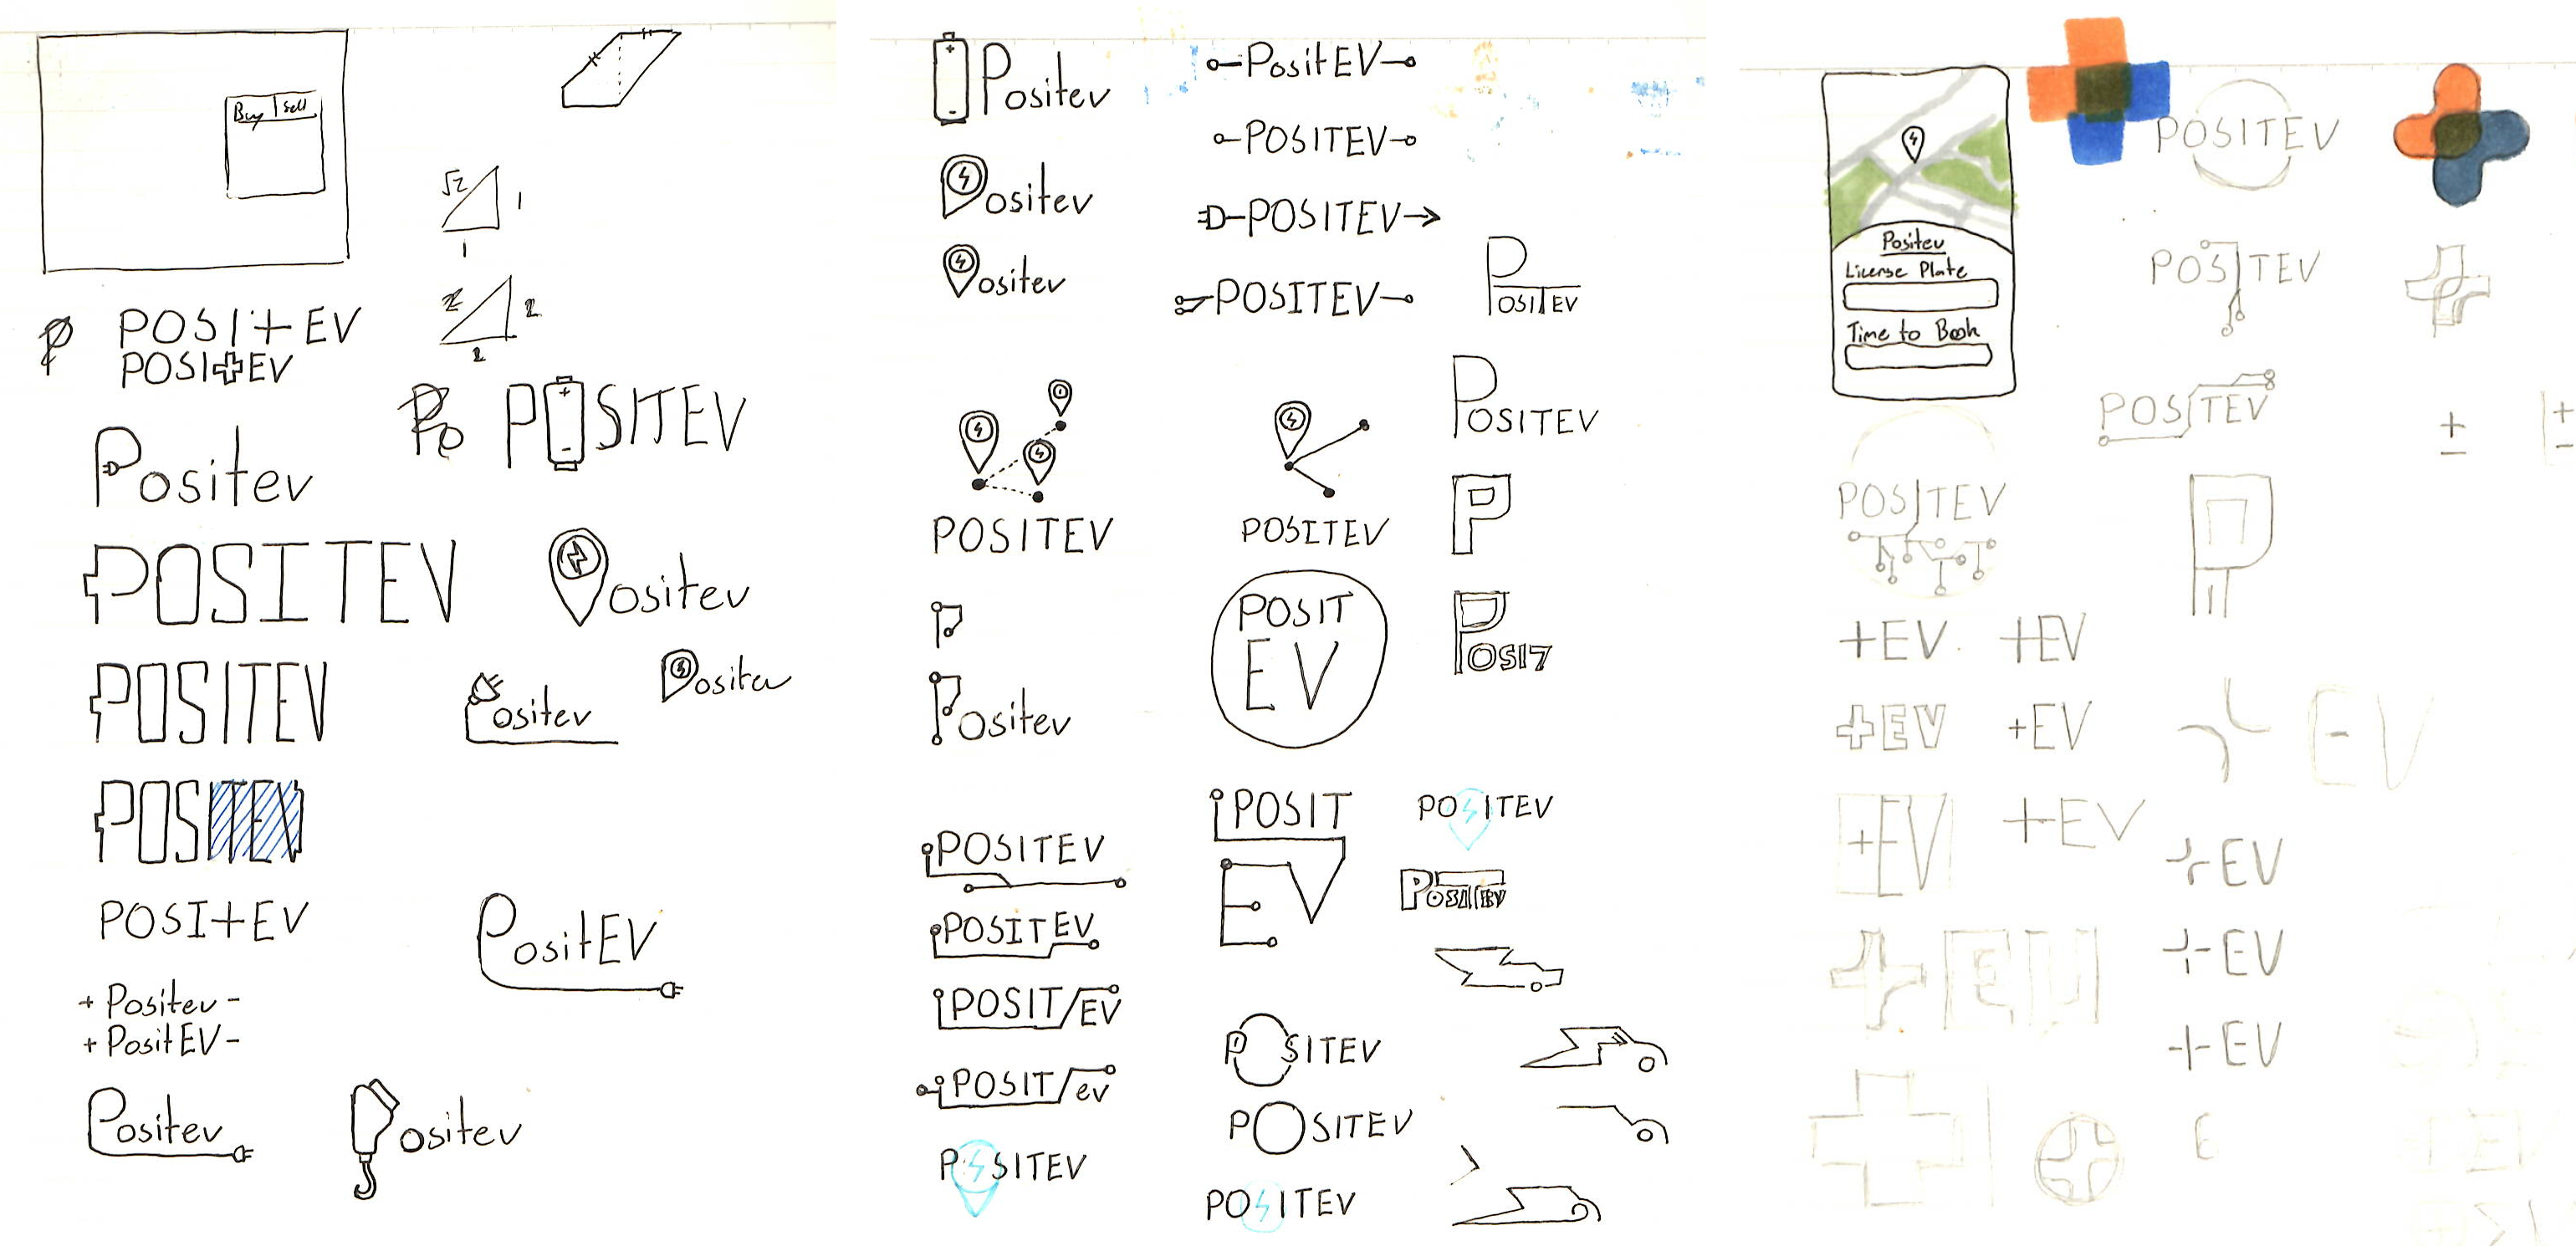 Buy | Sell
√2
1
1
2
2
2
P
POSI+EV
POSI+EV
Po
POSITEV
Positev
POSITEV
Positev
POSITEV
Positev
Positev
POSITEV
POSI+EV
PositEV
+ Positev -
+ PositEV -
Positev
Positev
Positev
Positev
Positev
PositEV
POSITEV
POSITEV
POSITEV
POSITEV
POSITEV
POSITEV
POSITEV
P
P
Positev
POSIT
EV
POSIT
POSITEV
POSITEV
POSIT/EV
POSIT/ev
POSITEV
POSIT
EV
POSITEV
POSITEV
POSITEV
POSITEV
POSITEV
Positev
License Plate
Time to Book
POSITEV
POSITEV
POSITEV
+
-
+
-
POSITEV
P
+EV
+EV
+EV
+EV
+EV
+EV
EV
+EV
+EV
+EV
+EV
E